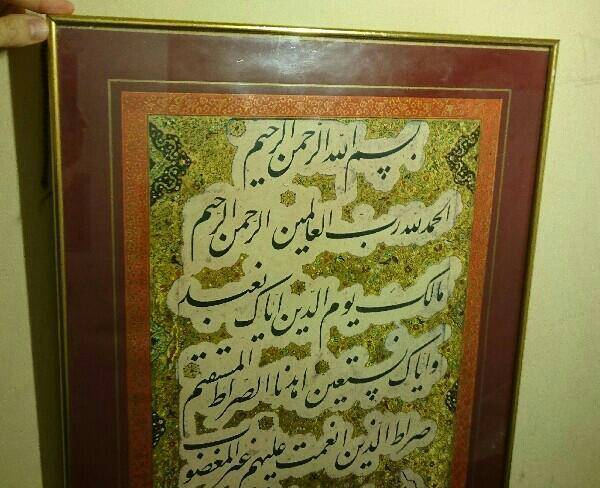 بسم الله الرحمن الرحیم
الحمد لله رب العالمین الرحمن الرحیم
مالک یوم الدین ایاک نعبد
و ایاک نستعین اهدنا الصراط المستقیم
صراط الذین انعمت علیهم غیر المغضوب